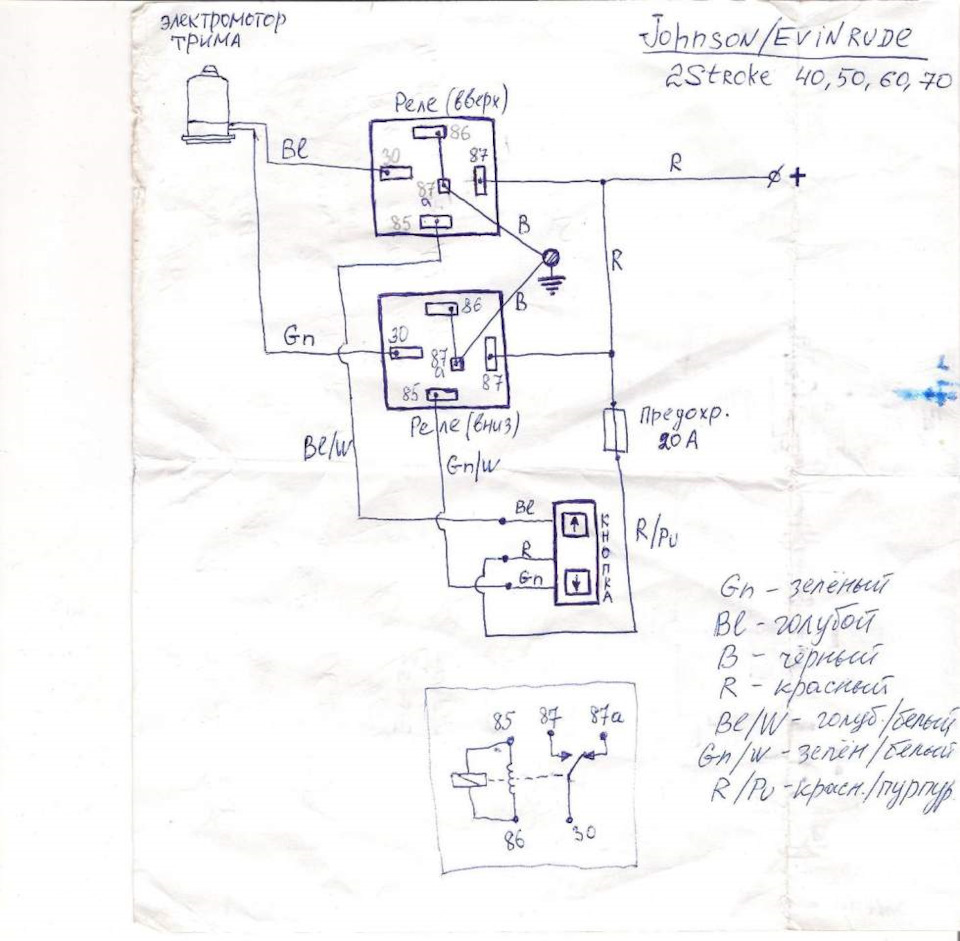 электромотор
трима
Johnson/EVINRUDE
2Stroke 40,50,60,70
Реле (вверх)
86
Bl
30
87
87
а
R
+
85
B
R
B
86
Gn
30
87
а
87
85
Реле (вниз)
Предохр.
20А
Bl/W
Gn/W
Bl
R
Gn
КНОПКА
R/Pu
Gn – зелёный
Bl – голубой
B – чёрный
R – красный
Bl/W – голуб/белый
Gn/W – зелён/белый
R/Pu – красн./пурпур.
85
87
87а
86
30